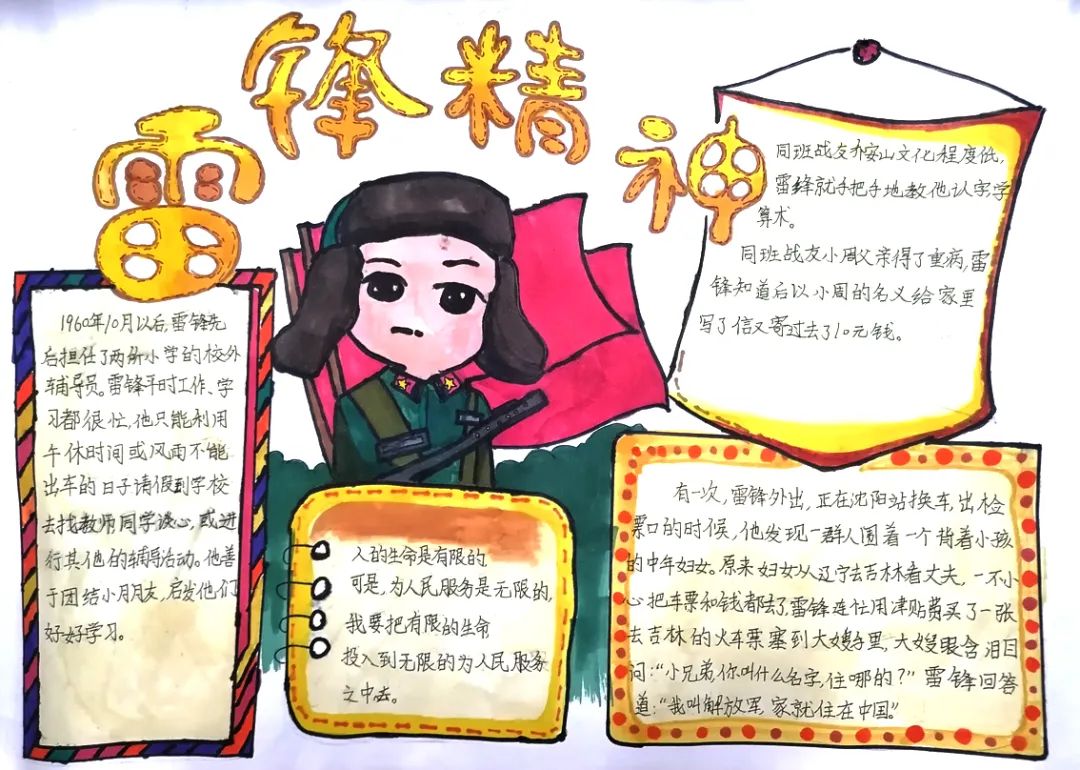 雷锋精神
1960年10月以后,雷锋先
后担任了两所小学的校外
辅导员。雷锋平时工作、学
习都很忙,他只能利用
午休时间或风雨不能
出车的日子请假到学校
去找教师同学谈心,或进
行其他的辅导活动。他善
于团结小朋友,启发他们
好好学习。
同班战友乔安山文化程度低,
雷锋就手把手地教他认字学
算术。
同班战友小周父亲得了重病,雷
锋知道后以小周的名义给家里
写了信又寄过去了10元钱。
人的生命是有限的
可是,为人民服务是无限的,
我要把有限的生命
投入到无限的为人民服务
之中去。
有一次,雷锋外出,正在沈阳站换车,出检
票口的时候,他发现一群人围着一个背着小孩
的中年妇女。原来妇女从辽宁去吉林看丈夫,一不小
心把车票和钱都丢了,雷锋连忙用津贴费买了一张
去吉林的火车票塞到大嫂手里,大嫂眼含泪目
问:“小兄弟,你叫什么名字,住哪的?”雷锋回答
道:“我叫解放军,家就住在中国。”